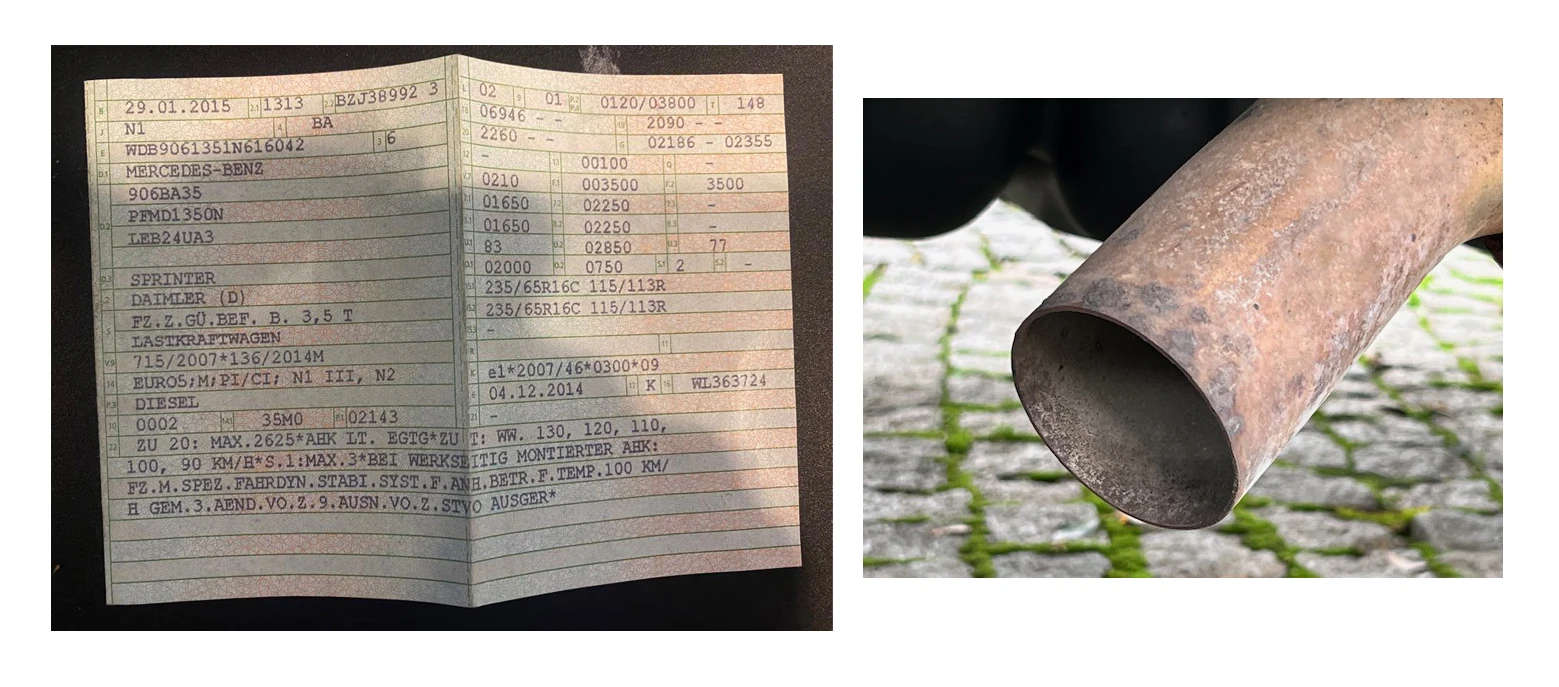 B 29.01.2015 2.1 1313 2.2 BZJ38992 3
J N1 4 BA
E WDB9061351N616042 3 6
D.1 MERCEDES-BENZ
906BA35
D.2 PFMD1350N
LEB24UA3
D.3 SPRINTER
2 DAIMLER (D)
5 FZ.Z.GÜ.BEF. B. 3,5 T
LASTKRAFTWAGEN
V.9 715/2007*136/2014M
14 EURO5;M;PI/CI; N1 III, N2
P.3 DIESEL
10 0002 14.1 35M0 P.1 02143
L 02 9 01 P.2 P.4 0120/03800 T 148
18 06946 - - 19 2090 - -
20 2260 - - G 02186 - 02355
12 - 13 00100 Q -
V.7 0210 F.1 003500 F.2 3500
7.1 01650 7.2 02250 7.3 -
8.1 01650 8.2 02250 8.3 -
U.1 83 U.2 02850 U.3 77
O.1 02000 O.2 0750 S.1 2 S.2 -
15.1 235/65R16C 115/113R
15.2 235/65R16C 115/113R
15.3 -
R 11
K e1*2007/46*0300*09
6 04.12.2014 17 K 16 WL363724
21 -
22 ZU 20: MAX.2625*AHK LT. EGTG*ZU T: WW. 130, 120, 110,
100, 90 KM/H*S.1:MAX.3*BEI WERKSEITIG MONTIERTER AHK:
FZ.M.SPEZ.FAHRDYN.STABI.SYST.F.ANH.BETR.F.TEMP.100 KM/
H GEM.3.AEND.VO.Z.9.AUSN.VO.Z.STVO AUSGER*